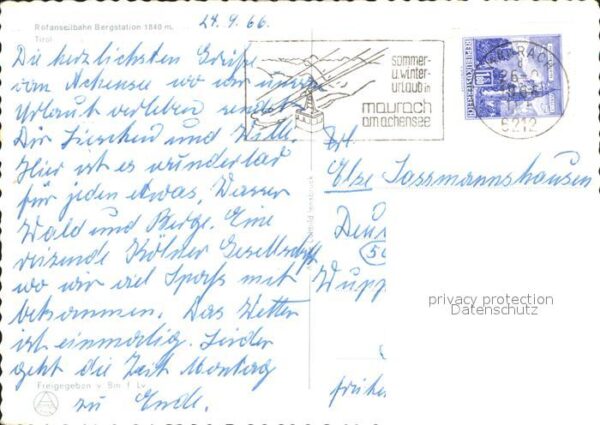 Rofanseilbahn Bergstation 1840 m.
Tirol
24.9.66.
Die herzlichsten Grüße
vom Achensee wo wir unseren
Urlaub verleben sendet
Dir Lieschen und Willi.
Hier ist es wunderbar
für jeden etwas, Wasser
Wald und Berge. Eine
reizende Kölner Gesellschaft
wo wir viel Spaß mit
bekommen. Das Wetter
ist einmalig. Leider
geht die Zeit Montag
zu Ende.
Freigegeben v. Bm f. Lv
sommer-
u. winter-
urlaub in
maurach
am achensee
MAURACH
6212
REPUBLIK ÖSTERREICH
Frl.
Else Sassmannshausen
Wupp
privacy protection
Datenschutz